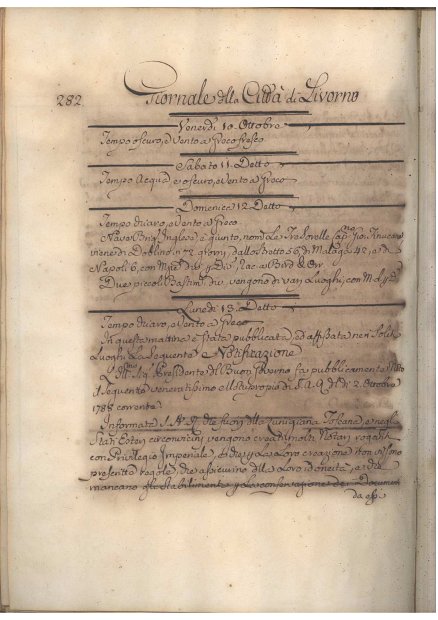 282
Giornale della Città di Livorno
Venerdì 10. Ottobre
Tempo oscuro, e Vento a Greco fresco
Sabato 11. Detto
Tempo Acqua e oscuro, e Vento a Greco
Domenica 12. Detto
Tempo chiaro, e Vento a Greco
Nave Inglese è giunto, nom. Le Tre Sorelle Cap.no
viene di Dublino in 72 giorni, dallo Stretto 56, di Malaga 42, e di
Napoli 6, con
Due piccoli Bastim. div. vengono di varj Luoghi, con
Lunedì 13. Detto
Tempo chiaro, e Vento a Greco
In questa mattina è stata pubblicata, ed affissata nei Soliti
Luoghi La Seguente Notificazione
L'Ill.mo Sig. Presidente del Buon Governo fa pubblicamente
il seguente veneratissimo Motuproprio di S. A. R. de' dì 2. Ottobre
1788 corrente
Informata S. A. R. che fuori della Lunigiana Toscana, e negli
Stati Esteri circonvicini vengono creati molti Notari rogati
con Privilegio Imperiale, che per La Loro creazione non vi sono
prescritte regole, che assicurino della Loro idoneità, e che
mancano gli stabilimenti per La conservazione dei Documenti
da essi